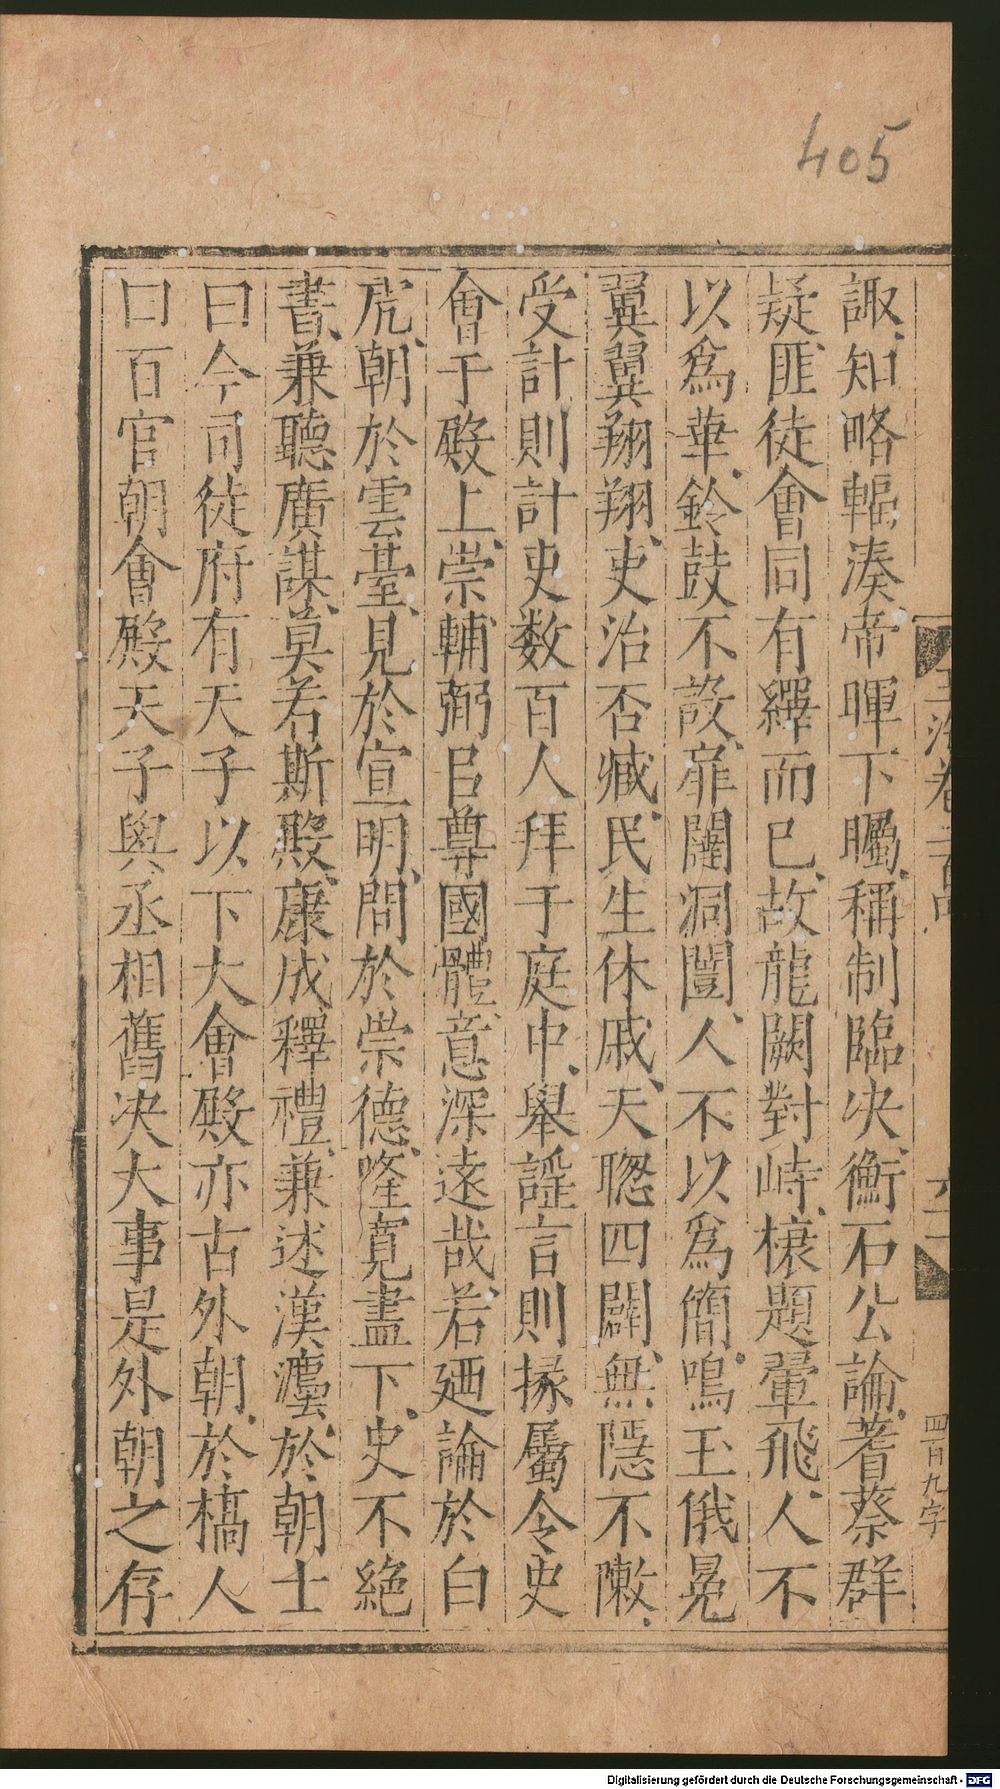 405
諏、知略輻湊、帝暉下矚、稱制臨决、衡石公論、蓍蔡群
疑、匪徒會同有繹而已、故龍闕對峙、榱題翬飛、人不
以爲華、鈴鼓不設、扉闥洞闓、人不以爲簡、鳴玉俄冕
翼翼翔翔、吏治否臧、民生休戚、天聦四闢、無隱不敶、
受計則計吏数百人拜于庭中、舉謡言則掾屬令史
會于殿上、崇輔弼㠯尊國體、意深遠哉、若廼論於白
虎、朝於雲䑓、見於宣明、問於崇德、隆寛盡下、史不絶
書、兼聽廣謀、莫若斯殿、康成釋禮、兼述漢灋、於朝士
曰今司徒府有天子以下大會殿亦古外朝、於槁人
曰百官朝會殿天子與丞相舊决大事是外朝之存
玉海卷
四百九字
Digitalisierung gefördert durch die Deutsche Forschungsgemeinschaft - DFG